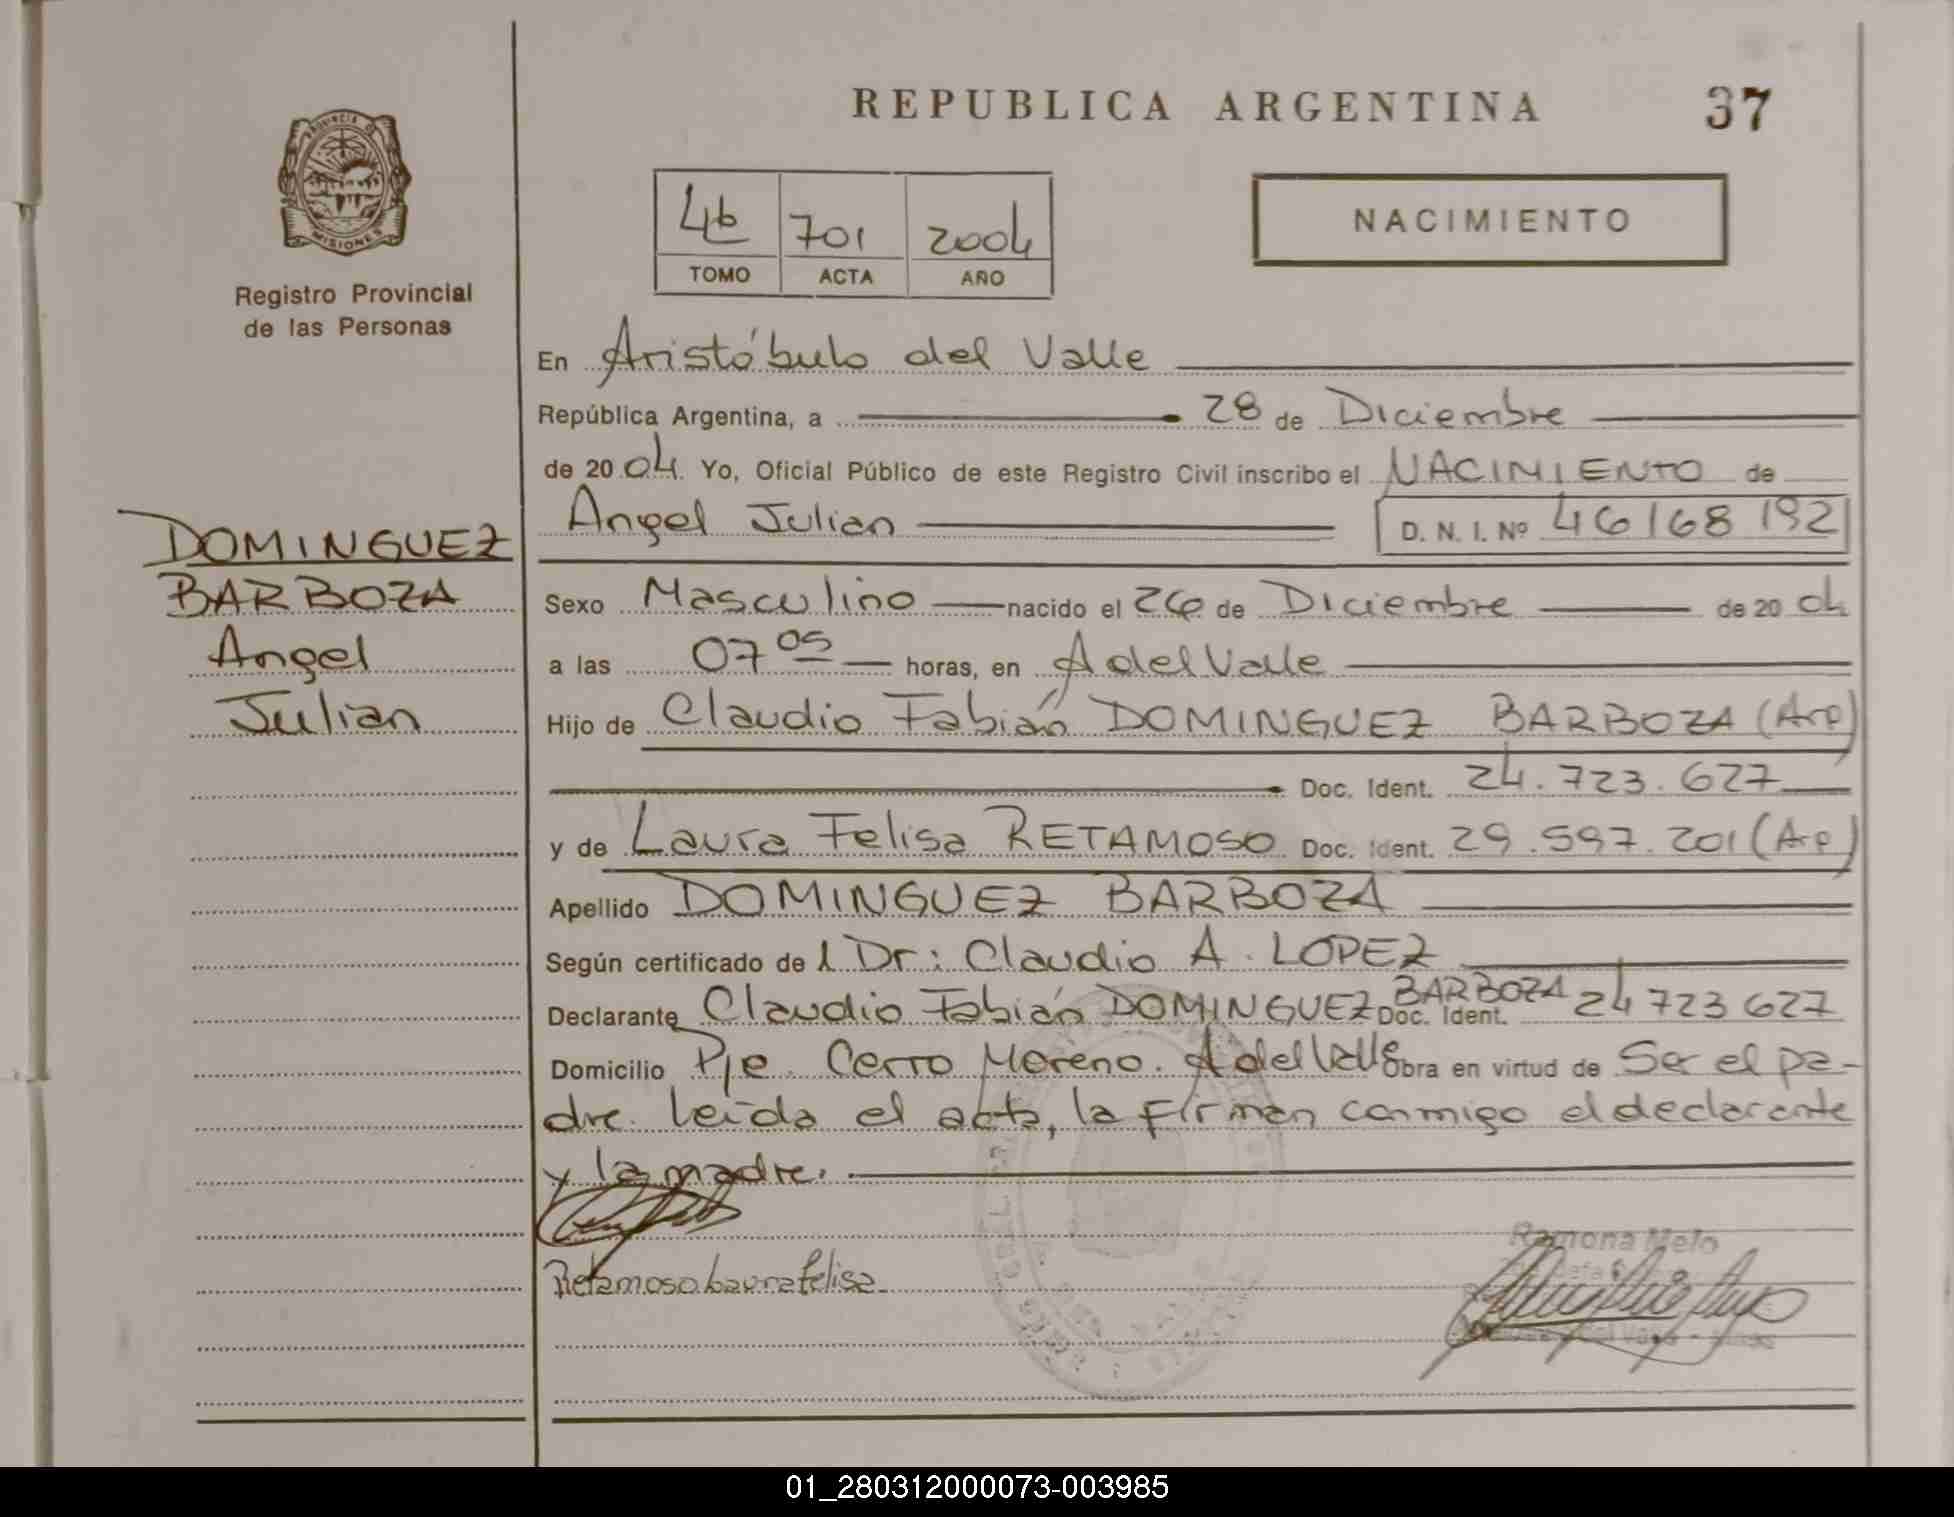 REPUBLICA ARGENTINA
37
PROVINCIA DE
MISIONES
Registro Provincial
de las Personas
4b 701 2004
TOMO ACTA AÑO
NACIMIENTO
En Aristóbulo del Valle
República Argentina, a 28 de Diciembre
de 20 04. Yo, Oficial Público de este Registro Civil inscribo el NACIMIENTO de
Angel Julian D. N. I. Nº 46168192
DOMINGUEZ
BARBOZA
Angel
Julian
Sexo Masculino nacido el 26 de Diciembre de 20 04
a las 07 05 horas, en A del Valle
Hijo de Claudio Fabián DOMINGUEZ BARBOZA (Arg)
Doc. Ident. 24.723.627
y de Laura Felisa RETAMOSO Doc. Ident. 29.597.201 (Arg)
Apellido DOMINGUEZ BARBOZA
Según certificado de l Dr: Claudio A. LOPEZ
Declarante Claudio Fabián DOMINGUEZ BARBOZA Doc. Ident. 24 723 627
Domicilio Pje. Cerro Moreno. A del Valle Obra en virtud de Ser el pa-
dre. Leída el acta, la firman conmigo el declarante
y la madre.
Retamoso Laura felisa
Ramona Melo
01_280312000073-003985